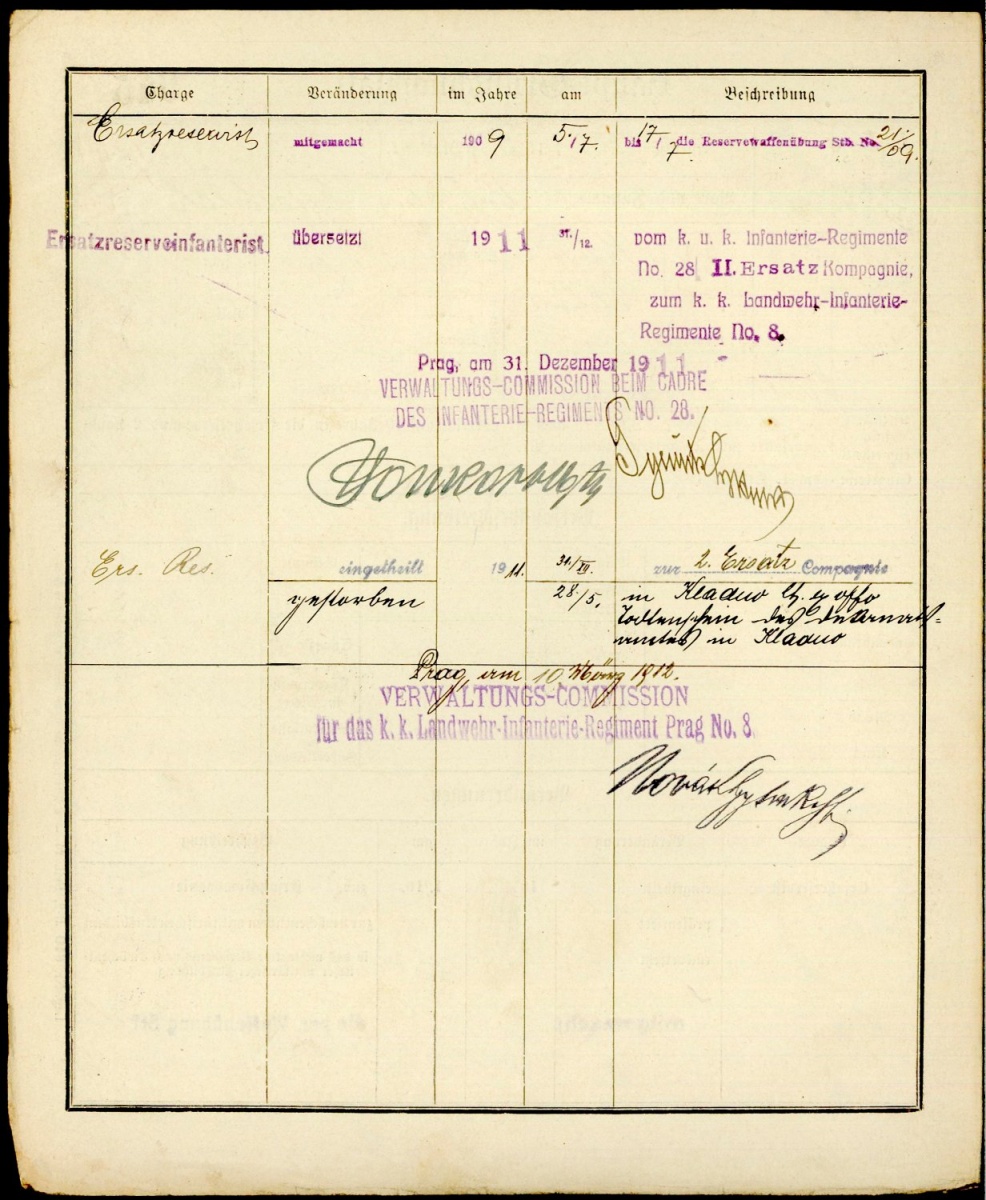 Charge Veränderung im Jahre am Beschreibung
Ersatzreservist mitgemacht 1909 5./7. bis 17/7 die Reservewaffenübung Stb. No. 21./09.
Ersatzreserveinfanterist. übersetzt 1911 31./12. vom k. u. k. Infanterie-Regimente
No. 28 II. Ersatz Kompagnie,
zum k. k. Landwehr-Infanterie-
Regimente No. 8.
Prag, am 31. Dezember 1911
VERWALTUNGS-COMMISSION BEIM CADRE
DES INFANTERIE-REGIMENTS NO. 28.
Ers. Res. eingetheilt 1911. 31./XII. zur 2. Ersatz Compagnie
gestorben 28./5. in Kladno
Todtenschein des
amtes in Kladno
Prag, am 10 März 1912.
VERWALTUNGS-COMMISSION
für das k. k. Landwehr-Infanterie-Regiment Prag No. 8.
Novák